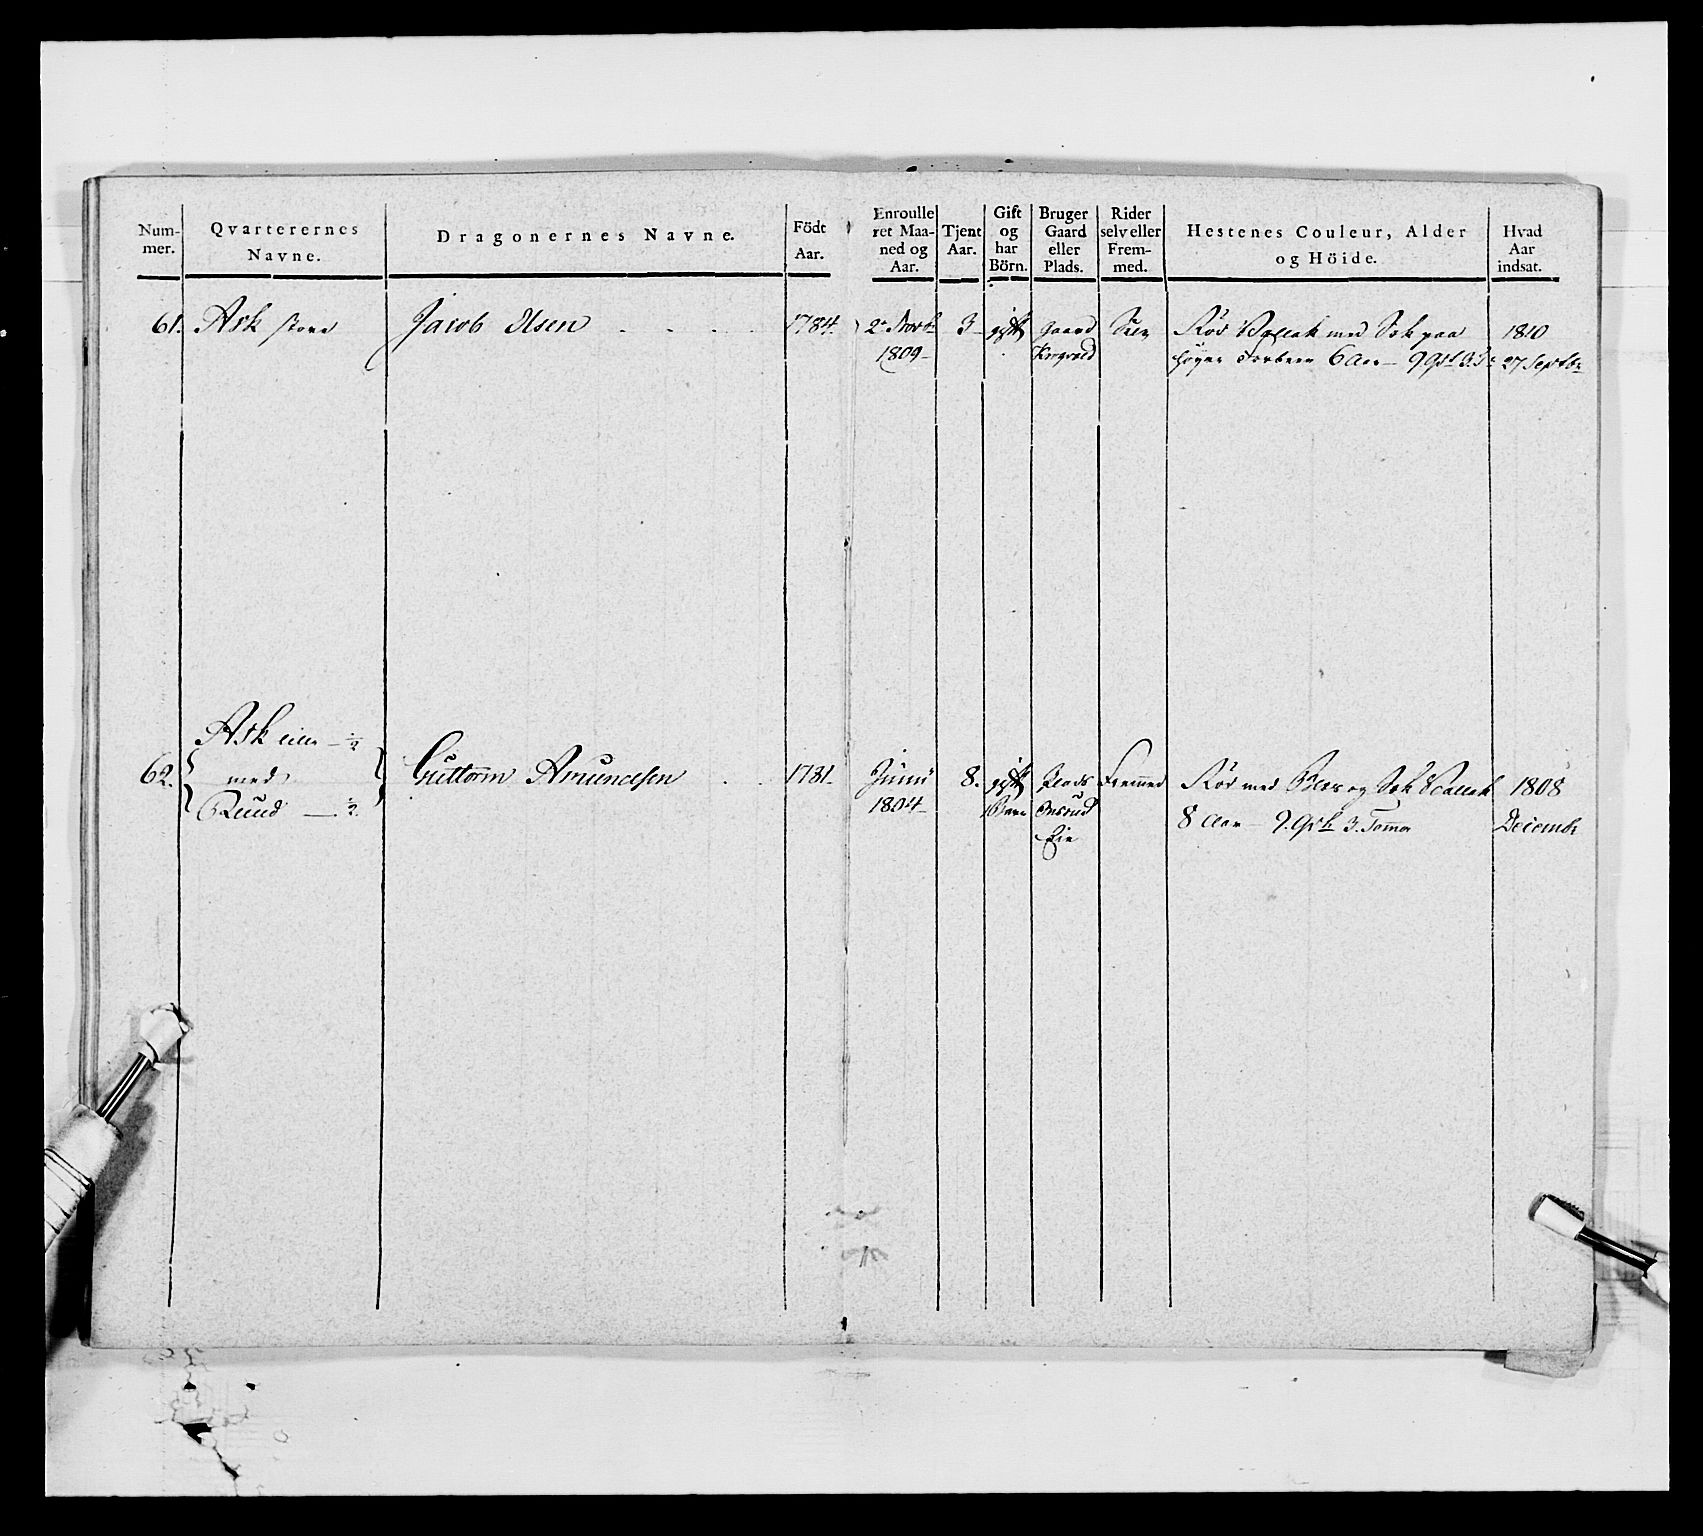 Num-
mer.
Qvarterernes
Navne.
Dragonernes Navne.
Födt
Aar.
Enroulle
ret Maa-
ned og
Aar.
Tjent
Aar.
Gift
og
har
Börn.
Bruger
Gaard
eller
Plads.
Rider
selv eller
Frem-
med.
Hestenes Couleur, Alder
og Höide.
Hvad
Aar
indsat.
61. Ask store
Jacob Olsen . . . .
1784.
2 Novbr
1809
3
gift
gaard
Selv
Rød Vallak med Sok paa
6 Aar 9 Qrt 3 T
1810
27 Septbr
Ask lille ½
62. med
Ruud ½
Guttorm Amundsen . .
1781
Junii
1804
8.
gift
1 Barn
Plads
Eie
Fremmed
Rød med Bles og Sok Vallak
8 Aar 9. Qrt 3. Tomer
1808
Decembr